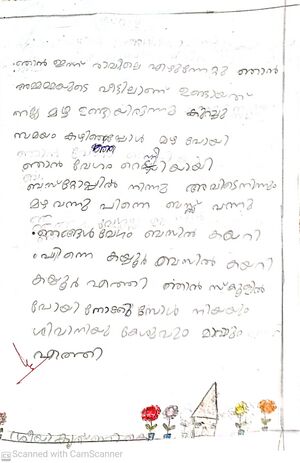 ഞാൻ ഇന്ന് രാവിലെ എഴുന്നേറ്റു ഞാൻ
അമ്മമ്മയുടെ വീട്ടിലാണ് ഉണ്ടായത്
നല്ല മഴ ഉണ്ടായിരുന്നു കുറച്ചു
സമയം കഴിഞ്ഞപ്പോൾ മഴ പോയി
ഞാൻ വേഗം റെഡിയായി
ബസ്റ്റോപ്പിൽ നിന്നു അവിടന്നിന്നും
മഴ വന്നു പിന്നെ ബസ്സ് വന്നു
ഞങ്ങൾ വേഗം ബസിൽ കയറി
പിന്നെ കയ്യൂർ ബസിൽ കയറി
കയ്യൂർ എത്തി ഞാൻ സ്കൂളിൽ
പോയി നോക്കുമ്പോൾ നിയയും
ശിവാനിയു കേശുവും മാഷും
എത്തി
Scanned with CamScanner